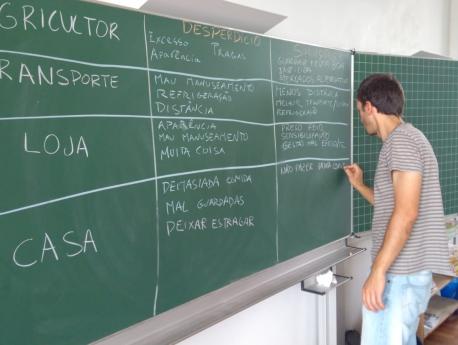 GRICULTOR
DESPERDÍCIO
Excesso
PRAGAS
Aparência
RANSPORTE
MAU MANUSEAMENTO
REFRIGERAÇÃO
DISTÂNCIA
MENOS DISTÂNCIA
MELHOR TRANSPORTE
REFRIGERAÇÃO
LOJA
APARÊNCIA
MAU MANUSEAMENTO
MUITA COISA
PREÇO FEIO
SENSIBILIZAÇÃO
GESTÃO MAIS EFICIENTE
CASA
DEMASIADA COMIDA
MAL GUARDADAS
DEIXAR ESTRAGAR
NÃO FAZER